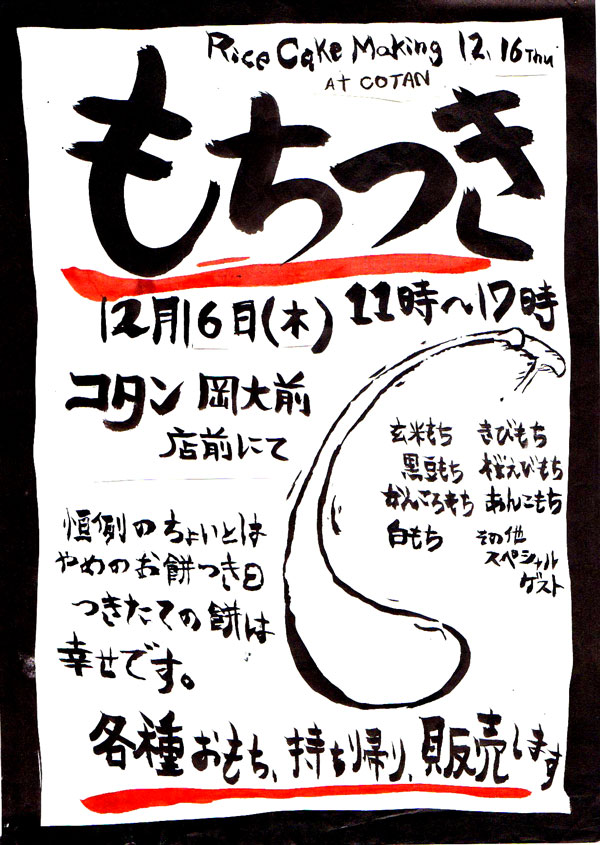 Rice Cake Making 12.16 Thu
AT COTAN
もちつき
12月16日(木) 11時〜17時
コタン 岡大前
店前にて
玄米もち きびもち
黒豆もち 桜えびもち
なんころもち あんこもち
白もち その他
スペシャル
ゲスト
恒例のちょいとは
やめのお餅つき日
つきたての餅は
幸せです。
各種おもち、持ち帰り、販売します